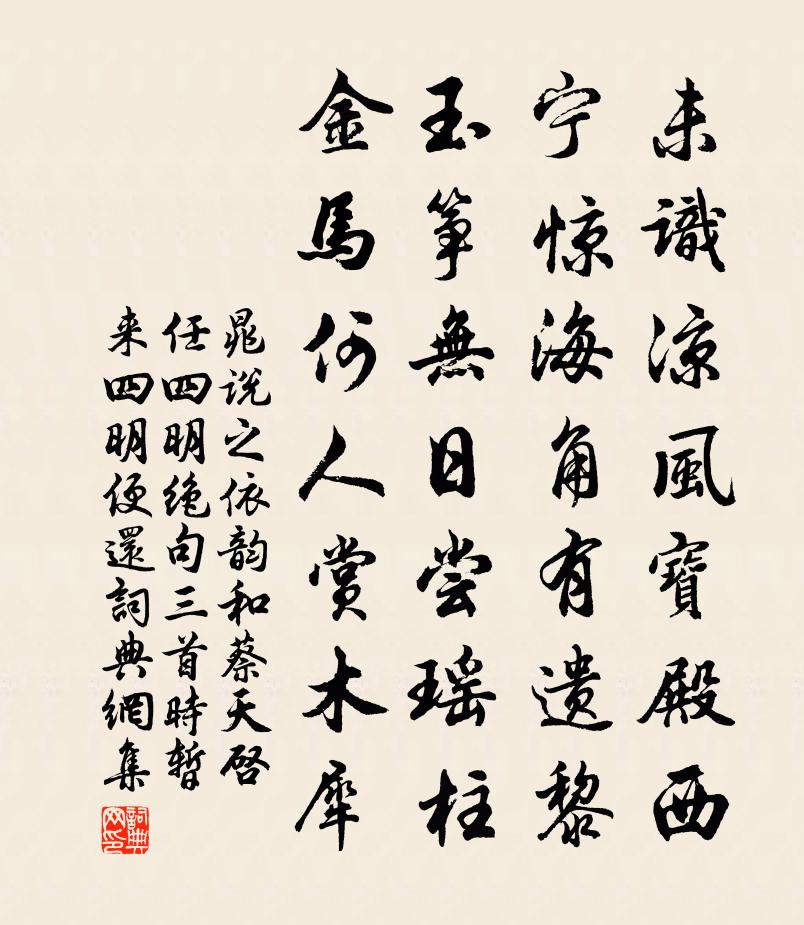 未識涼風寶殿西
宁惊海角有遗黎
玉筝無日尝瑶柱
金馬何人赏木犀
晁说之依韵和蔡天启
任四明绝句三首時暂
来四明便還詞典網集
詞典网印